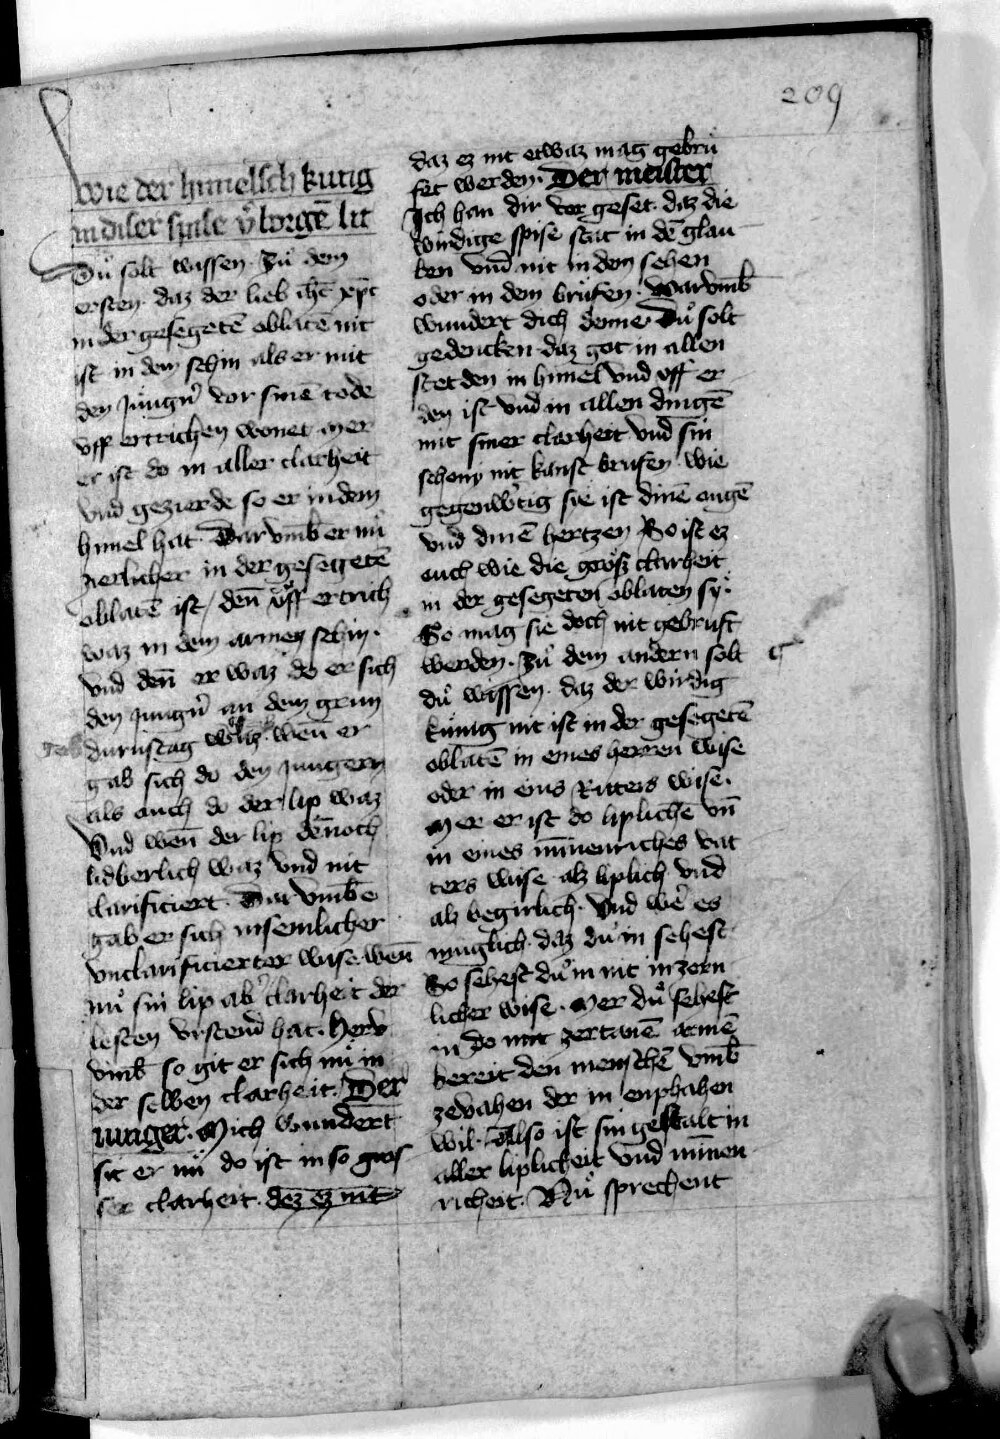 209
wie der himelsch kunig
in diser spise v̓borgē lit
Dů solt wissen zů dem
ersten daz der lieb ih̄c xp̄c
in der gesegetē oblatē nit
ist in dem schin als er mit
den jung̓n vor sinē tode
vff ertrichen wonet mer
er ist do in aller clarheit
vnd gezierde so er in dem
himel hat Dar vmb̄ er nů
zierlicher in der gesegetē
oblatē ist / den̄ vff ertrich
waz in dem armen schin
vnd den̄ er waz do er sich
den jung̓n an dem grun
durnstag wen̄ er
gab sich do den jungern
als ouch do der lip waz
Vnd wen̄ der lip dēnoch
lidberlich waz vnd nit
clarificiert Dar vmb̄e
gab er sich in semlicher
vnclarificierter wise wen̄
nů sin lip ab̓ clarheit der
lesten vrstend hat her v
vmb̄ so git er sich nů in
der selben clarheit Der
iunger Mich wundert
sit er nů do ist in so gros
ser clarheit dez ez nit
daz ez nit etwaz mag gebrů
fet werden Der meister
Ich han dir vor geset daz die
wirdige spise stat in dē glau
ben vnd nit in dem sehen
oder in dem brůfen warvmb̄
wundert dich denne Dů solt
gedencken daz got in allen
stetden in himel vnd vff er
den ist vnd in allen dingē
mit siner clarheit vnd sin
schony nit kanst brufen wie
gegenw̓tig sie ist dinē ougē
vnd dinē hertzen So ist ez
ouch wie die grosz clarheit
in der gesegeten oblaten sy
So mag sie doch nit gebruft
werden Zů dem andern solt
dů wissen daz der wirdig
kůnig nit ist in der gesegetē
oblatē in eines herren wise
oder in eins Ritters wise
Mer er ist do liplichē vn̄
in eines minnenriches vat
ters wise alz liplich vnd
alz begirlich Vnd wer̓ es
muglich daz dů in sehest
So sehest dů in nit in zorn
licher wise Mer dů sehest
in do mit zertanē armē
bereit den menschē vmb̄
zevahen der in enphahen
wil Also ist sin gestalt in
aller liplicheit vnd minnen
richeit Nů sprechent